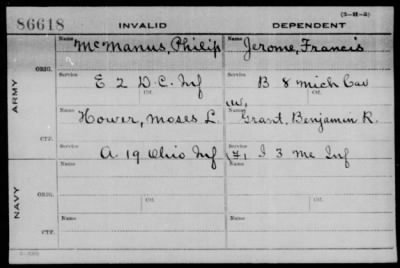 86618 INVALID DEPENDENT
(3-H-5)
Name McManus, Philip Name Jerome, Francis
ORIG. Service E 2 D.C. Inf Service B 8 Mich Cav
ARMY
Of. Of.
W,
Name Hower, Moses L. Name Grant, Benjamin R.
CTF. Service A. 19 Ohio Inf Service I 3 Me Inf
Name Name
NAVY
ORIG.
Of. Of.
Name Name
CTF.